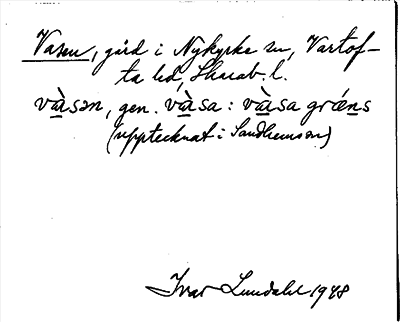 Vasen, gård i Nykyrke sn, Vartof-
ta hd, Skarab. l.
và̱sən, gen. và̱sa : và̱sa grǽn̲s
(upptecknat i Sandhemssn)
Ivar Lundahl 1948